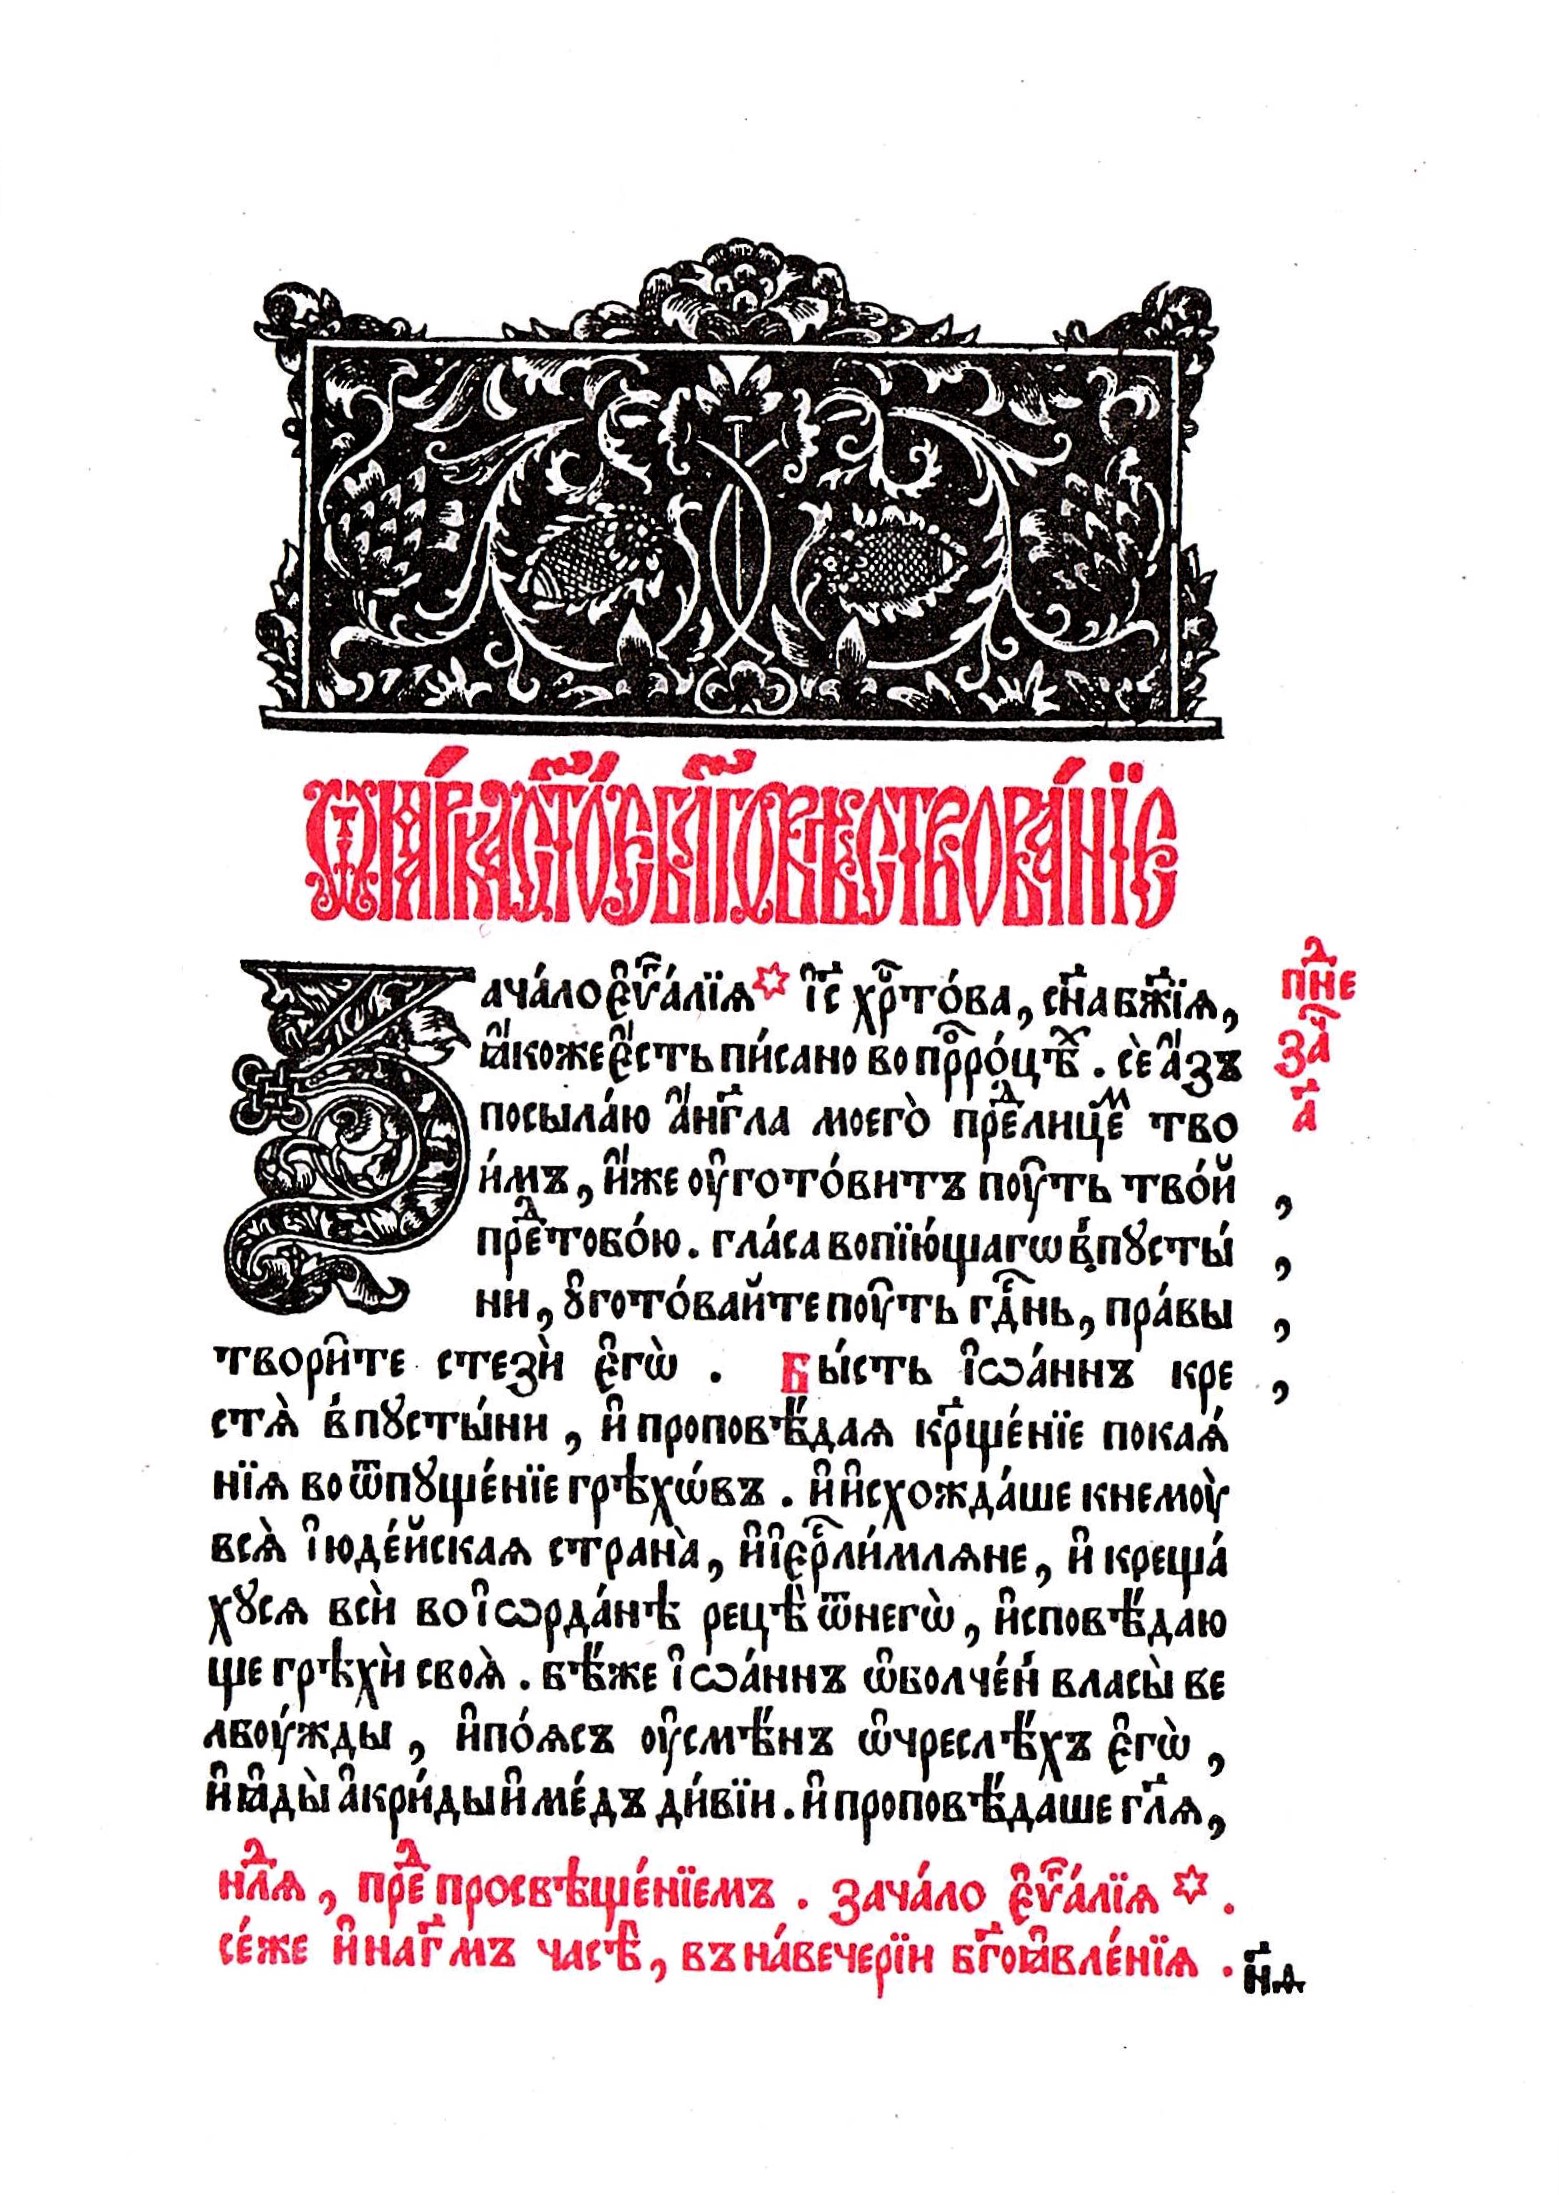 Ѿ ма́рка ст҃о́е бл҃говѣствова́нїе
Зача́ло є҆ѵⷢ҇а́лїя * і҆с҃ хрⷭ҇то́ва, сн҃а бж҃їя,
ꙗ҆́коже є҆́сть пи́сано во прⷪ҇ро́цѣⷯ. сѐ а҆́зъ
посыла́ю а҆́нг҃ла моего̀ преⷣлицеⷨ тво
и́мъ, и҆́же ᲂу҆гото́витъ поу́ть тво́й
преⷣтобо́ю. гла́са вопїю́щагѡ в̾пꙋсты́
ни, ꙋ҆гото́вайте поу́ть гдⷭ҇нь, пра́вы
твори́те стезѝ є҆гѡ̀. Бы́сть і҆ѡа́ннъ кре
стѧ̀ в̾пꙋсты́ни, и҆ проповѣ́даѧ крⷭ҇ще́нїе покаѧ́
нїѧ во ѿпꙋще́нїе грѣхѡ́въ. и҆ и҆схожда́ше кнемоу̀
всѧ̀ і҆юде́йскаѧ страна̀, и҆ і҆ерⷭ҇ли́млѧне, и҆ креща́
хꙋсѧ всѝ во і҆ѡрда́нѣ рецѣ̀ ѿнегѡ̀, и҆сповѣ́даю
ще грѣхѝ своѧ̀. бѣ́же і҆ѡа́ннъ ѡ҆болче́н̾ власы̀ ве
лбоу́жды, и҆по́ѧсъ ᲂу҆смѣ́нъ ѡ҆чреслѣ́хъ є҆гѡ̀,
и҆ ꙗ҆ды̀ а҆кри́ды и҆ ме́дъ ди́вїи. и҆ проповѣ́даше гл҃ѧ,
нлⷣѧ, преⷣ просвѣще́нїемъ. зача́ло є҆ѵⷢ҇а́лїѧ *.
се́же и҆ на г҃мъ часѣ̀, въ на́вечерїи бг҃оꙗвле́нїѧ.
пнⷣе
заⷱ҇
а҃
н҃д